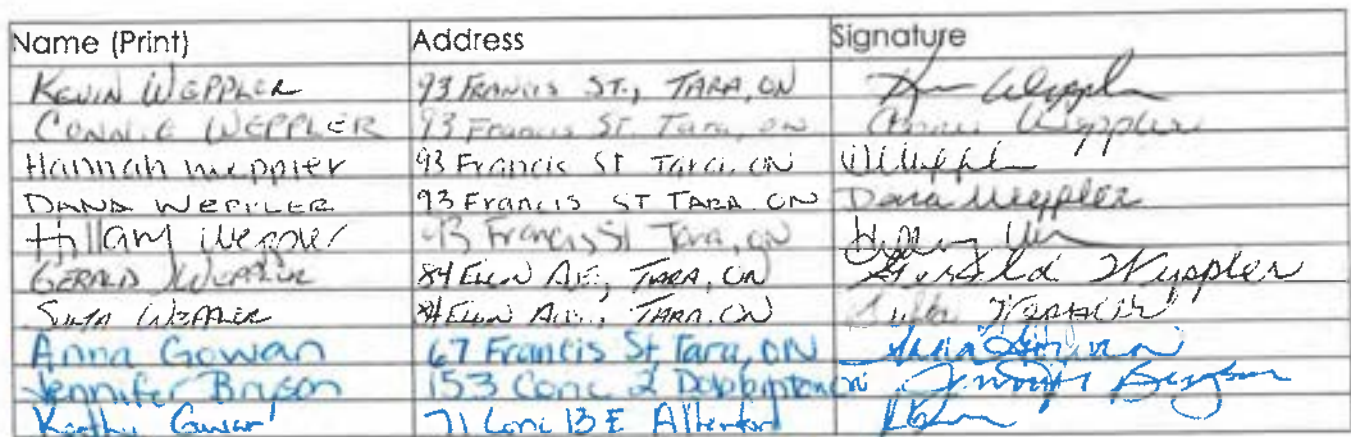 Name (Print) Address Signature
KEVIN WEPPLER 93 FRANCIS ST., TARA, ON Weppler
CONNIE WEPPLER 93 Francis St. Tara, ON Connie Weppler
Hannah Weppler 93 Francis St Tara, ON
DANA WEPPLER 93 Francis ST TARA ON Dana Weppler
Hillary Weppler 93 Francis St Tara, ON
GERALD WEPPLER 84 AVE, TARA, ON Gerald Weppler
WEPPLER 84 TARA, ON
Anna Gowan 67 Francis St, Tara, ON Anna
Jennifer Bryson 153 Conc 2 Jennifer Bryson
Kathy Gowan 71 Conc 13 E